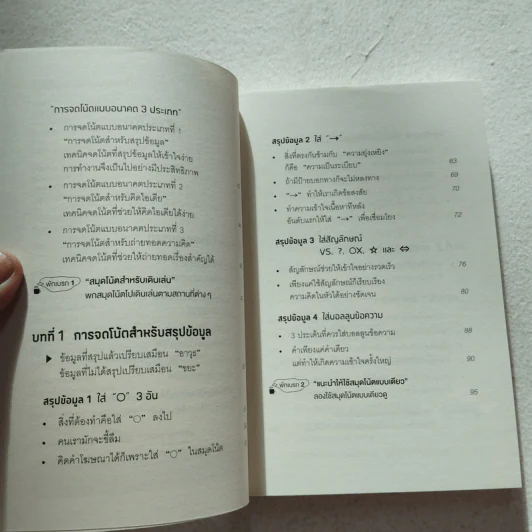 "การจดโน้ตแบบอนาคต 3 ประเภท"
• การจดโน้ตแบบอนาคตประเภทที่ 1
"การจดโน้ตสำหรับสรุปข้อมูล"
เทคนิคจดโน้ตที่สรุปข้อมูลให้เข้าใจง่าย
การทำงานจึงเป็นไปอย่างมีประสิทธิภาพ
• การจดโน้ตแบบอนาคตประเภทที่ 2
"การจดโน้ตสำหรับคิดไอเดีย"
เทคนิคจดโน้ตที่ช่วยให้คิดไอเดียได้ง่าย
• การจดโน้ตแบบอนาคตประเภทที่ 3
"การจดโน้ตสำหรับถ่ายทอดความคิด"
เทคนิคจดโน้ตที่ช่วยให้ถ่ายทอดเรื่องสำคัญได้
พักเบรก 1 "สมุดโน้ตสำหรับเดินเล่น"
พกสมุดโน้ตไปเดินเล่นตามสถานที่ต่าง ๆ
บทที่ 1 การจดโน้ตสำหรับสรุปข้อมูล
▶ ข้อมูลที่สรุปแล้วเปรียบเสมือน "อาวุธ"
ข้อมูลที่ไม่ได้สรุปเปรียบเสมือน "ขยะ"
สรุปข้อมูล 1 ใส่ "○" 3 อัน
• สิ่งที่ต้องทำคือใส่ "○" ลงไป
• คนเรามักจะขี้ลืม
• คิดคำโฆษณาได้ก็เพราะใส่ "○" ในสมุดโน้ต
สรุปข้อมูล 2 ใส่ "→"
• สิ่งที่ตรงกันข้ามกับ "ความยุ่งเหยิง"
ก็คือ "ความเป็นระเบียบ" 63
• ถ้ามีป้ายบอกทางก็จะไม่หลงทาง 69
• "→" ทำให้เราเกิดข้อสงสัย 70
• ทำความเข้าใจเนื้อหาทีหลัง
อันดับแรกให้ใส่ "→" เพื่อเชื่อมโยง 72
สรุปข้อมูล 3 ใส่สัญลักษณ์
VS. ?. OX. ☆ และ ⇔
• สัญลักษณ์ช่วยให้เข้าใจอย่างรวดเร็ว 76
• เพียงแค่ใช้สัญลักษณ์ก็เรียบเรียง
ความคิดในหัวได้อย่างชัดเจน 80
สรุปข้อมูล 4 ใส่บอลลูนข้อความ
• 3 ประเด็นที่ควรใส่บอลลูนข้อความ 88
• คำเพียงแค่คำเดียว
แต่ทำให้เกิดความเข้าใจครั้งใหญ่ 90
พักเบรก 2 "แนะนำให้ใช้สมุดโน้ตแบบเดียว"
ลองใช้สมุดโน้ตแบบเดียวดู 95